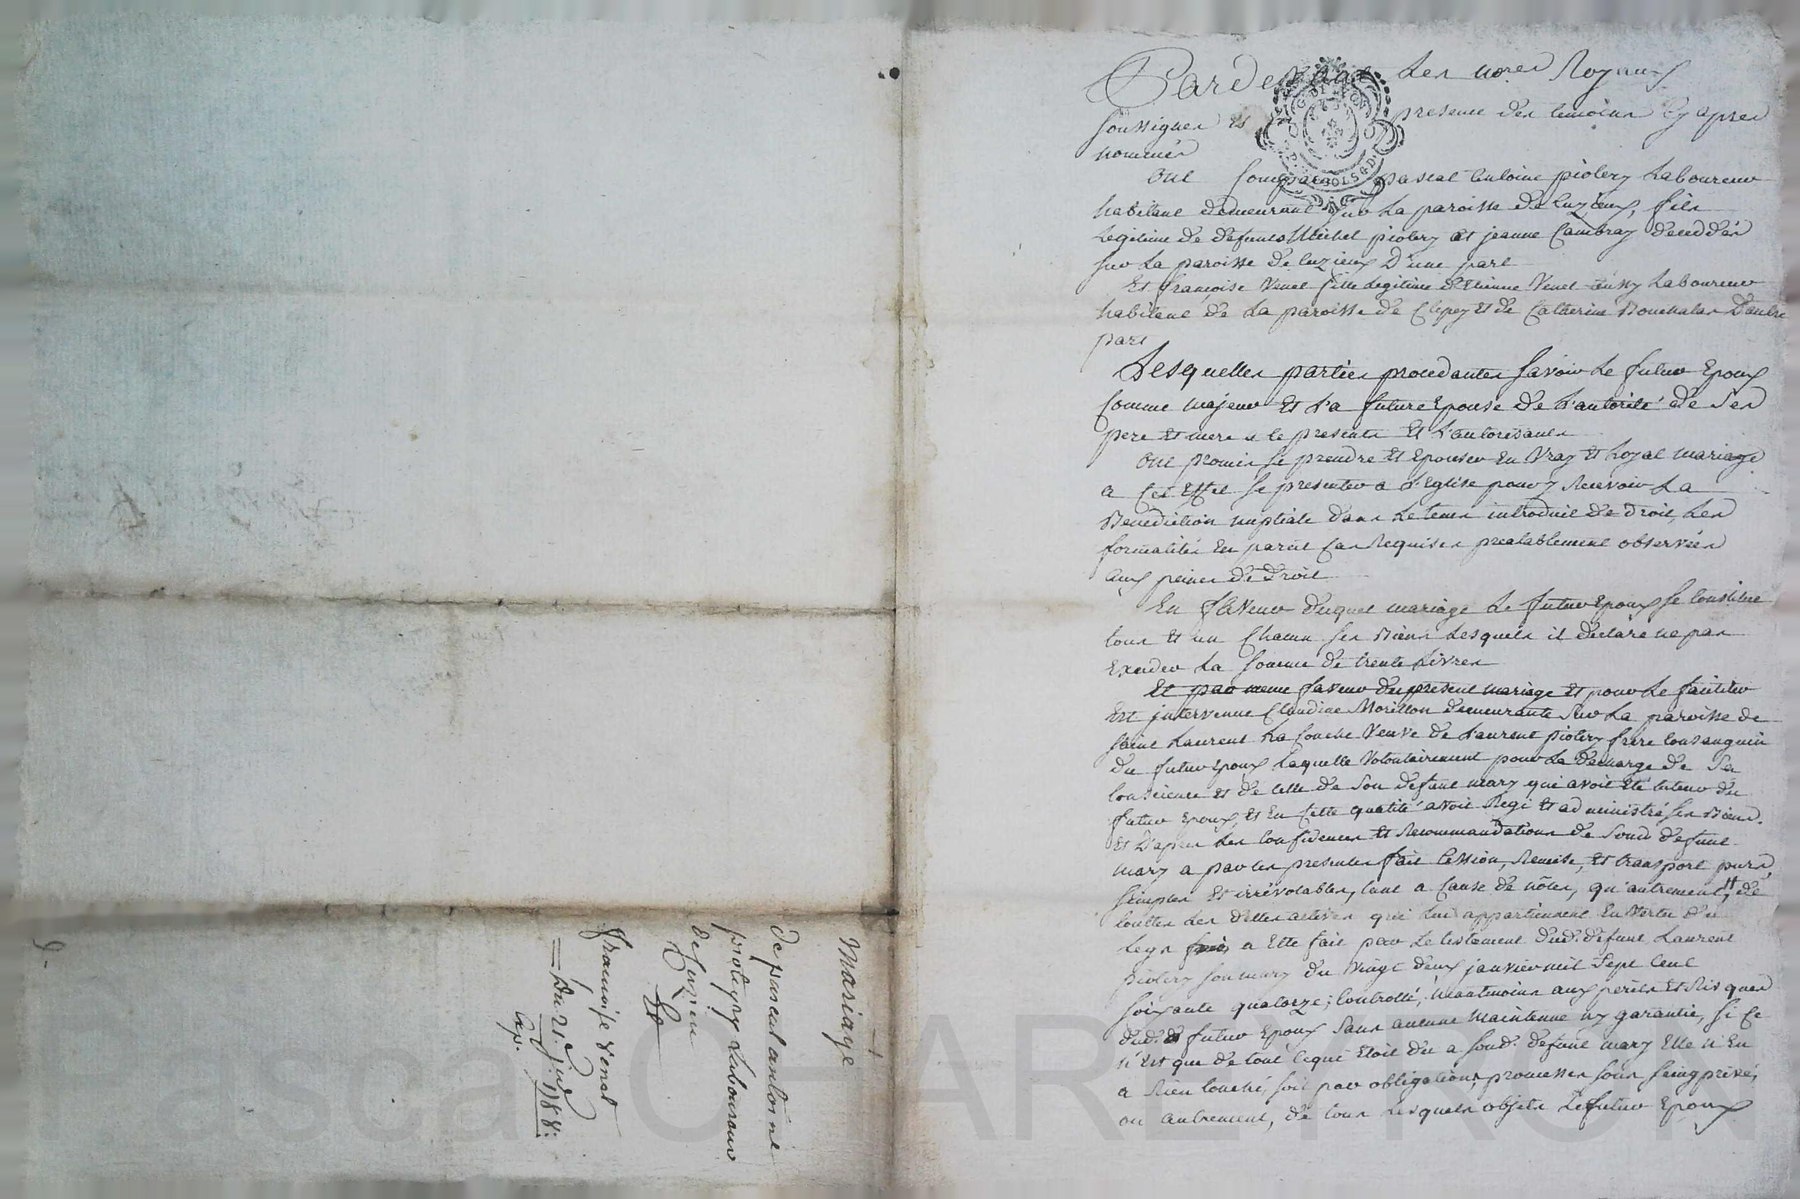 Mariage
de pascal antoine
piolery Laboureur
de Luzieu
Et
françoise Venet
Du 21. j.er 1788:
Exp.
Pardevant Les no.res Royaux
soussignes Et En presence des temoins Cy apres
nommés
Ont Comparu pascal antoine piolery Laboureur
habitant demeurant sur La paroisse de Luzieux, fils
Legitime de defunts Michel piolery et jeanne Cambray decedés
sur La paroisse de Luzieux D'une part
Et françoise Venet fille Legitime d'Etienne Venet aussy Laboureur
habitant de La paroisse de Clepey Et de Catherine Bouchalas D'autre
part
Lesquelles parties procedantes savoir Le futur Epoux
Comme majeur Et La future Epouse de L'autorité de Ses
pere Et mere a ce presents Et L'autorisants
Ont promis se prendre Et Epouser En Vray Et Loyal mariage
a Cet Effet se presenter a L'Eglise pour y Recevoir La
Benediction nuptiale dans Le tems introduit de Droit, Les
formalités En pareil Cas Requises prealablement observées
aux peines de Droit
En faveur duquel mariage Le futur Epoux se Constitue
tous Et un Chacun ses Biens Lesquels il declare ne pas
Exceder La somme de trente Livres
Et par meme faveur du present mariage Et pour Le faciliter
Est intervenue Claudine Morillon demeurante Sur La paroisse de
saint Laurent La Conche Veuve de Laurent piolery frere Consanguin
du futur Epoux Laquelle Volontairement pour La decharge de Sa
Conscience Et de Celle de Son defunt mary qui avoit Eté tuteur du
futur Epoux, et En Cette qualité avoit Regi Et administré ses Biens.
Et D'apres Les Confidences Et Recommandations de Sond. defunt
mary a par les presentes fait Cession, Remise, Et transport purs,
simples Et irrévocables, tant a Cause de nôces, qu'autrement, de
touttes Les dettes actives qui Lui appartiennent En Vertu du
Legs a Elle fait par Le testament dud. defunt Laurent
piolery son mary du Vingt deux janvier mil Sept Cent
soixante quatorze; Controllé, neantmoins aux perils Et Risques
dud. futur Epoux Sans aucune Maintenue ny garantie, si Ce
n'Est que de tout Ce qui Etoit du a sond. defunt mary Elle n'En
a Rien touché, soit par obligations, promesses sous seing privé,
ou autrement, de tous Lesquels objets Le futur Epoux
Pascal CHAREYRON